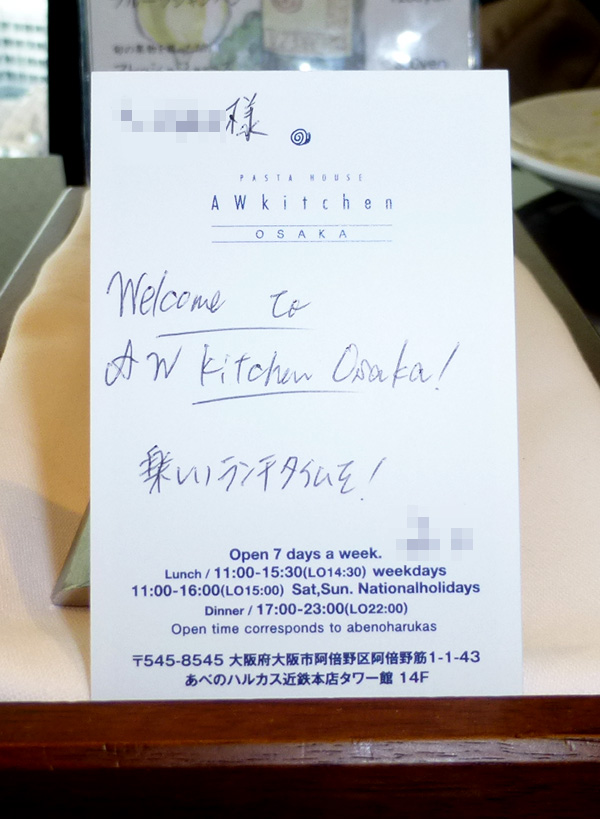 様
PASTA HOUSE
AWkitchen
OSAKA
Welcome to
AW Kitchen Osaka!
楽しいランチタイムを!
Open 7 days a week.
Lunch / 11:00-15:30(LO14:30) weekdays
11:00-16:00(LO15:00) Sat,Sun. Nationalholidays
Dinner / 17:00-23:00(LO22:00)
Open time corresponds to abenoharukas
〒545-8545 大阪府大阪市阿倍野区阿倍野筋1-1-43
あべのハルカス近鉄本店タワー館 14F